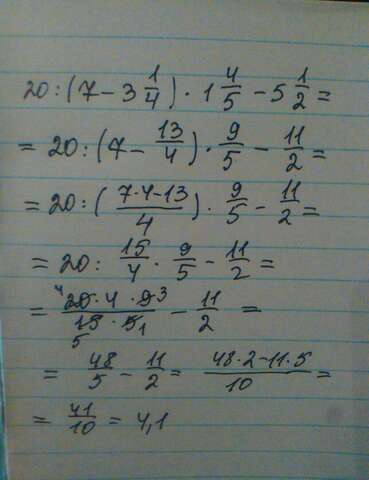 20:(7-3 1/4)·1 4/5-5 1/2=
=20:(7-13/4)·9/5-11/2=
=20:((7·4-13)/4)·9/5-11/2=
=20:15/4·9/5-11/2=
=(20 4·4·9 3)/(15 5·5 1)-11/2=
=48/5-11/2=(48·2-11·5)/10=
=41/10=4,1